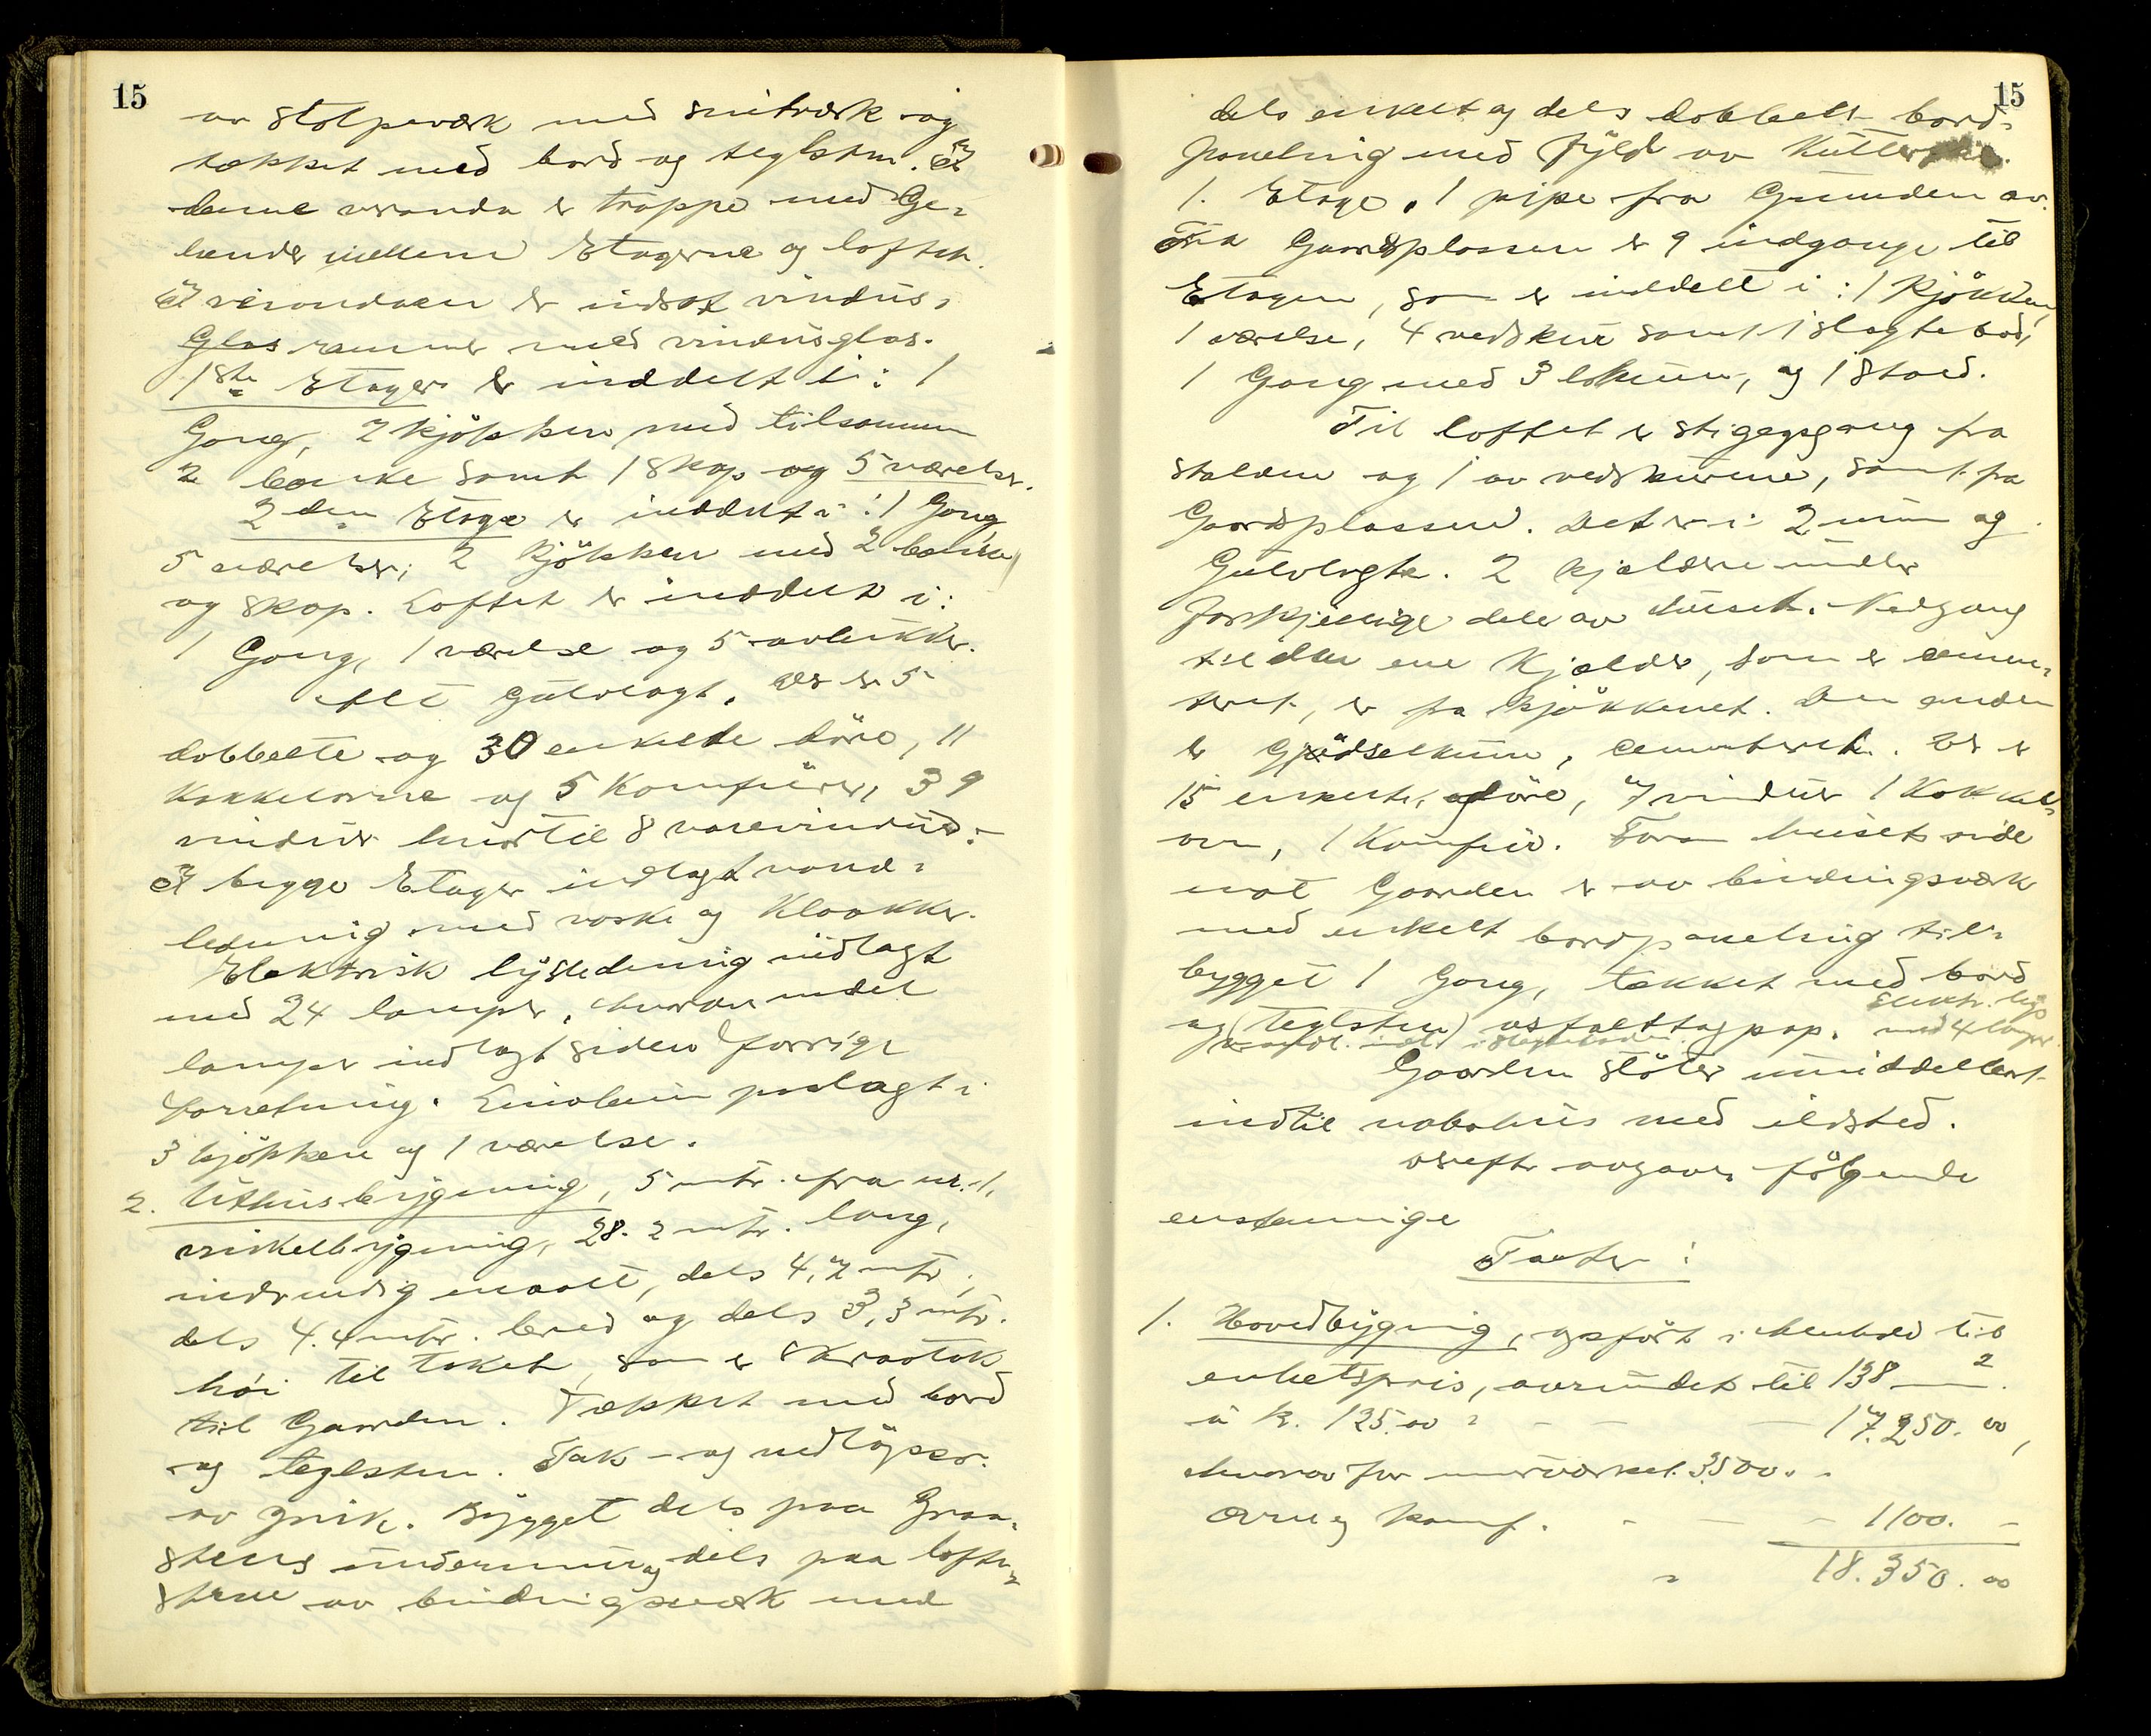 15
av stolpeværk med snitværk og
tækket med bord og teglsten. I
denne veranda er trappe med Ge-
lænder mellem Etagerne og loftet.
I verandaen er indsat vindus-
Glas rammer med vindusglas.
1ste Etage er inddelt i: 1
Gang, 2 kjökken med tilsammen
2 bænke samt 1 skap og 5 værelser.
2den Etage er inddelt i: 1 Gang
5 værelser, 2 kjökken med 2 bænke
og skap. Loftet er inddelt i:
1 Gang, 1 værelse og 5 avlukker.
Alt gulvlagt. Der er 5
dobbelte og 30 enkelte döre, 11
Kakkelovne og 5 Komfürer, 39
vinduer hvortil 8 varevinduer.
I begge Etager indlagt vand-
ledning med vaske og Kloakker.
Elektrisk lysledning indlagt
med 24 lamper, hvorav endel
lamper indlagt siden forrige
forretning. Linoleum paalagt i
3 kjökken og 1 værelse.
2. Uthusbygning, 5 mtr. fra nr. 1,
vinkelbygning, 28.2 mtr. lang,
indvendig maalt, dels 4,7 mtr,
dels 4.4 mtr. bred og dels 3,3 mtr.
høi til taket, som er skraatak
til Gaarden. Tækket med bord
og teglsten. Tak- og nedløpsr.
av zink. Bygget dels paa Graa-
stens undermur og dels paa lofte-
stene av bindingsværk med
15
dels enkelt og dels dobbelt bord-
paneling med fyld av Kutter
1. Etage, 1 pipe fra Grunden av.
Fra Gaardsplassen er 9 indgange til
Etagen, som er inddelt i: 1 Kjökken,
1 værelse, 4 vedskur samt 1 slagtebod,
1 Gang med 3 lokum, og 1 Stald.
Til loftet er stigegang fra
stalden og 1 av vedskurene, samt fra
Gaardsplassen. Det er i 2 rum og
Gulvlagte. 2 kjældere under
forskjellige dele av huset. Nedgang
til den ene Kjælder, som er cemen-
teret, er fra Kjökkenet. Den anden
er Gjödselkum, cementeret. Der er
15 enkelte döre, 7 vinduer 1 Kakkel-
ovn, 1 Komfür. Foran husets side
mot Gaarden er av bindingsværk
med enkelt bordpaneling til-
bygget 1 Gang, tækket med bord
og (teglsten) asfalttagpap. Elektr. lys
med 4 lamper.
vandl. indl. i slagteboden.
Gaarden stöter umiddelbart
indtil nabohus med ildsted.
Derefter avgaves fölgende
enstemmige
Takster:
1. Hovedbygning, opfört i henhold til
enhetspris, avrundet til 138 m2.
á kr. 125.00 = - - - 17.250.00,
hvorav for murværket 3500.-
Ovne og komf. - - - 1100.-
= 18.350.00